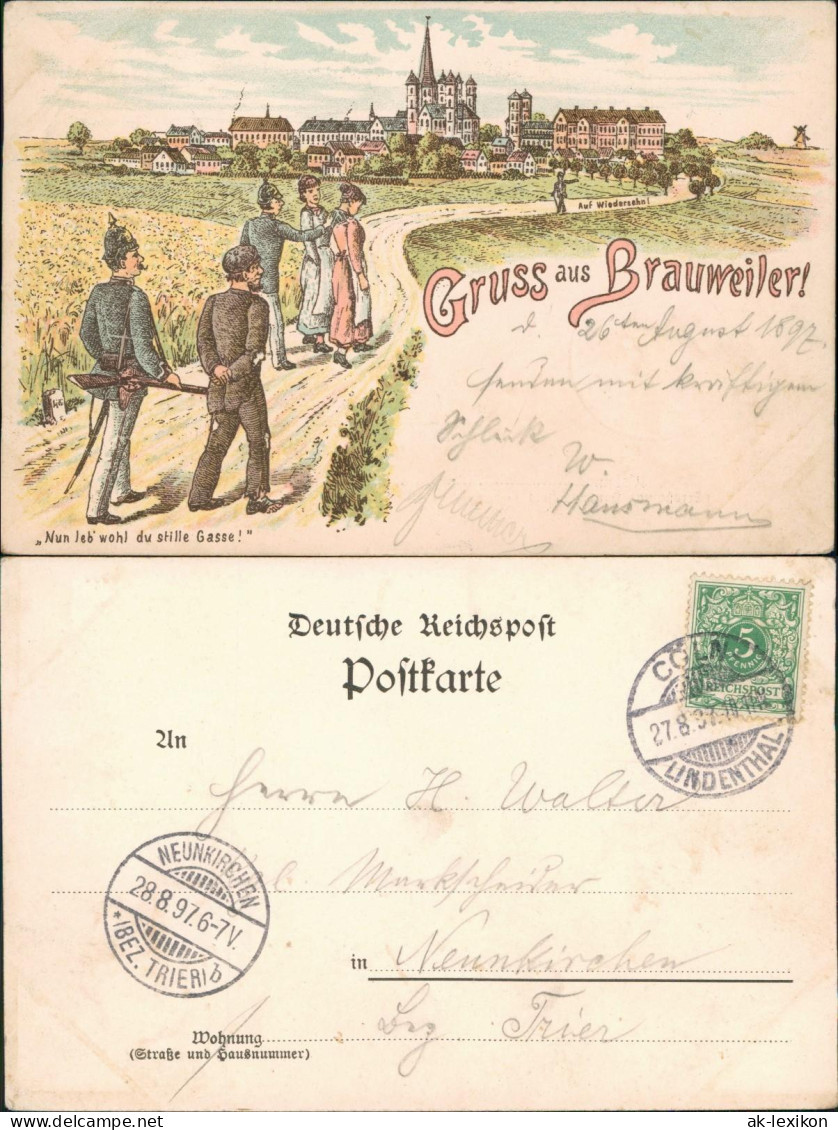 Auf Wiedersehn!
Gruss aus Brauweiler!
d. 26ten August 1897.
senden mit kräftigem
Schluck
W.
Hausmann
„Nun leb' wohl du stille Gasse!"
Deutsche Reichspost
Postkarte
5
PFENNIG
REICHSPOST
CÖLN
27.8.97
LINDENTHAL
An
Herrn H. Walter
Markscheider
NEUNKIRCHEN
28.8.97.6-7V.
*(BEZ. TRIER) b
in Neunkirchen
Bez. Trier
Wohnung
(Straße und Hausnummer)
ak-lexikon